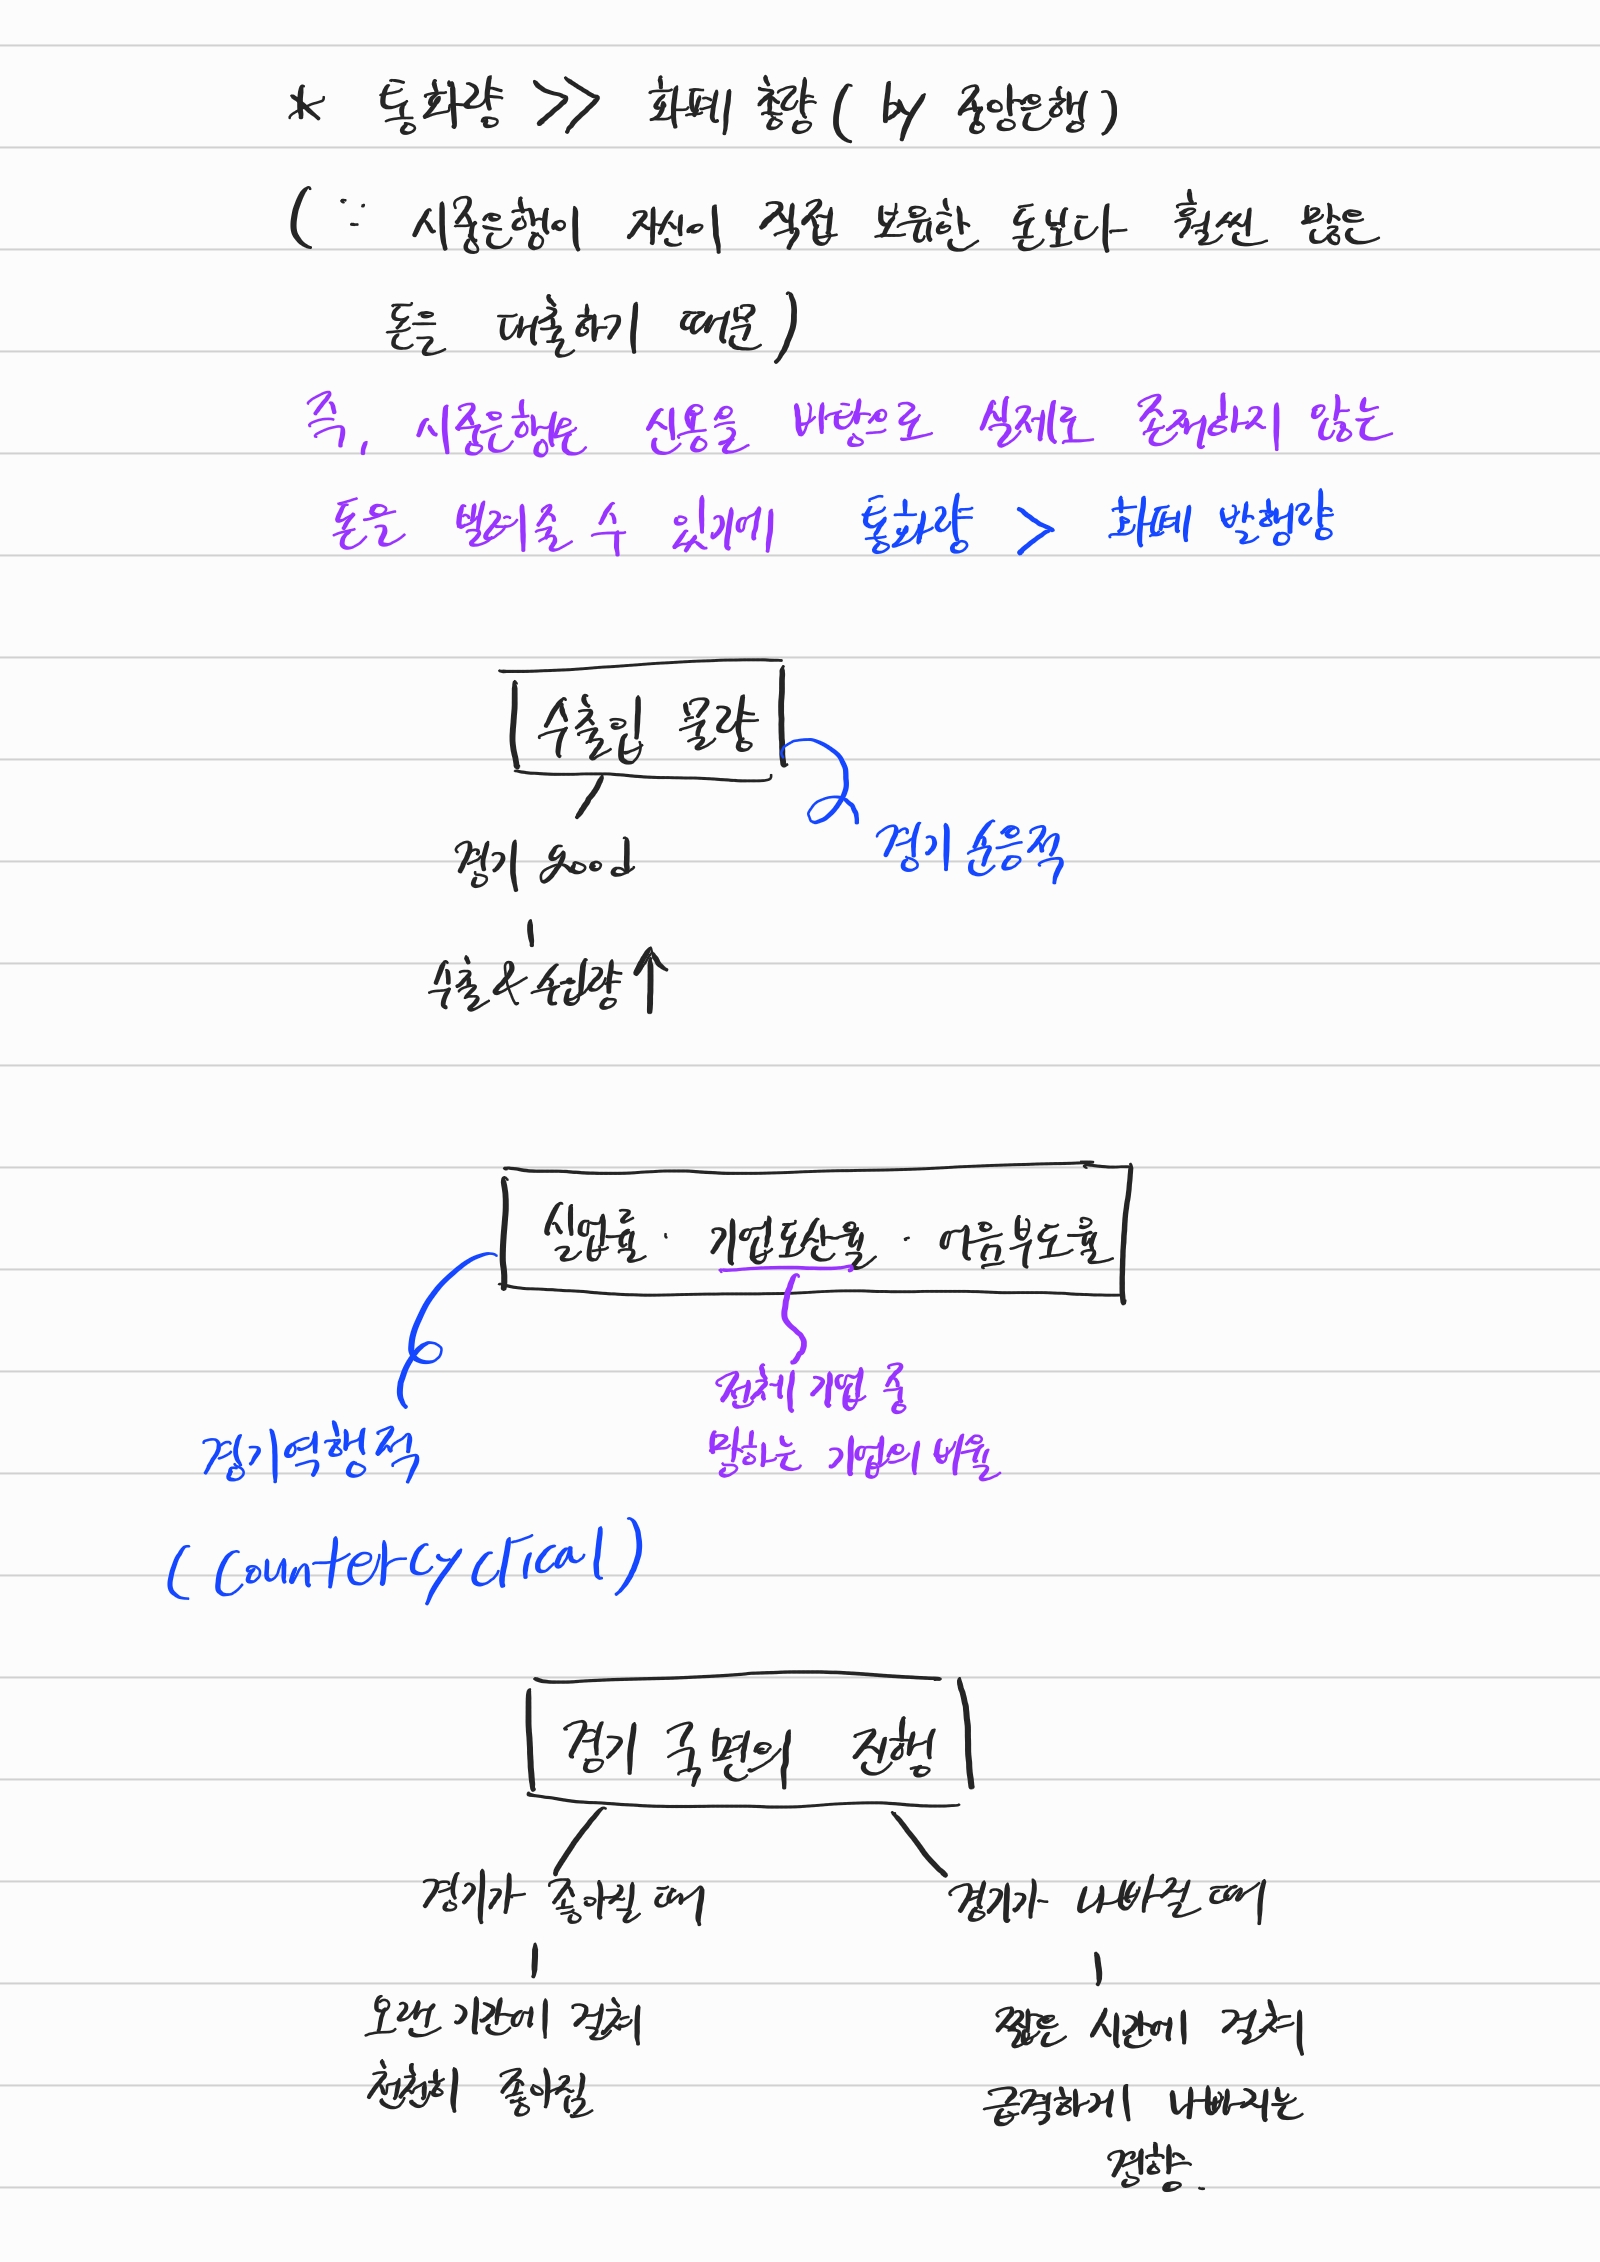 * 통화량 >> 화폐 총량 ( by 중앙은행 )
( ∵ 시중은행이 자신이 직접 보유한 돈보다 훨씬 많은
돈을 대출하기 때문 )
즉, 시중은행은 신용을 바탕으로 실제로 존재하지 않는
돈을 빌려줄 수 있기에 통화량 > 화폐 발행량
수출입 물량
경기 순응적
경기 good
수출 & 수입량 ↑
실업률 · 기업도산율 · 어음부도율
전체 기업 중
망하는 기업의 비율
경기역행적
( Countercyclical )
경기 국면의 진행
경기가 좋아질 때
오랜 기간에 걸쳐
천천히 좋아짐
경기가 나빠질 때
짧은 시간에 걸쳐
급격하게 나빠지는
경향.